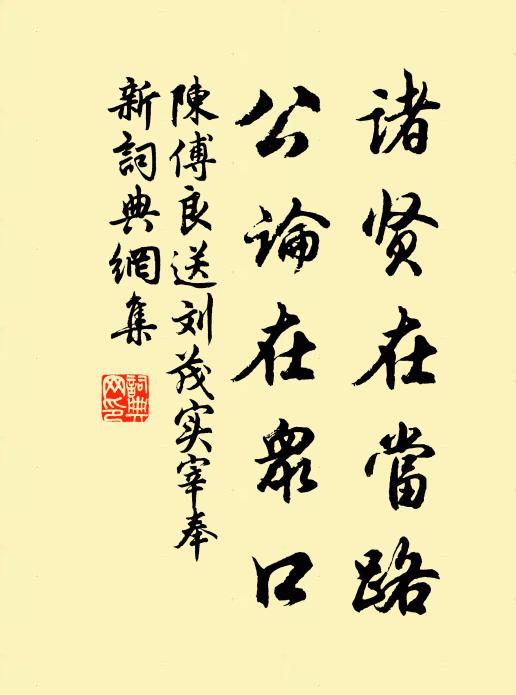 诸贤在當路
公論在眾口
陳傅良送刘茂实宰奉
新詞典網集
詞典
网印